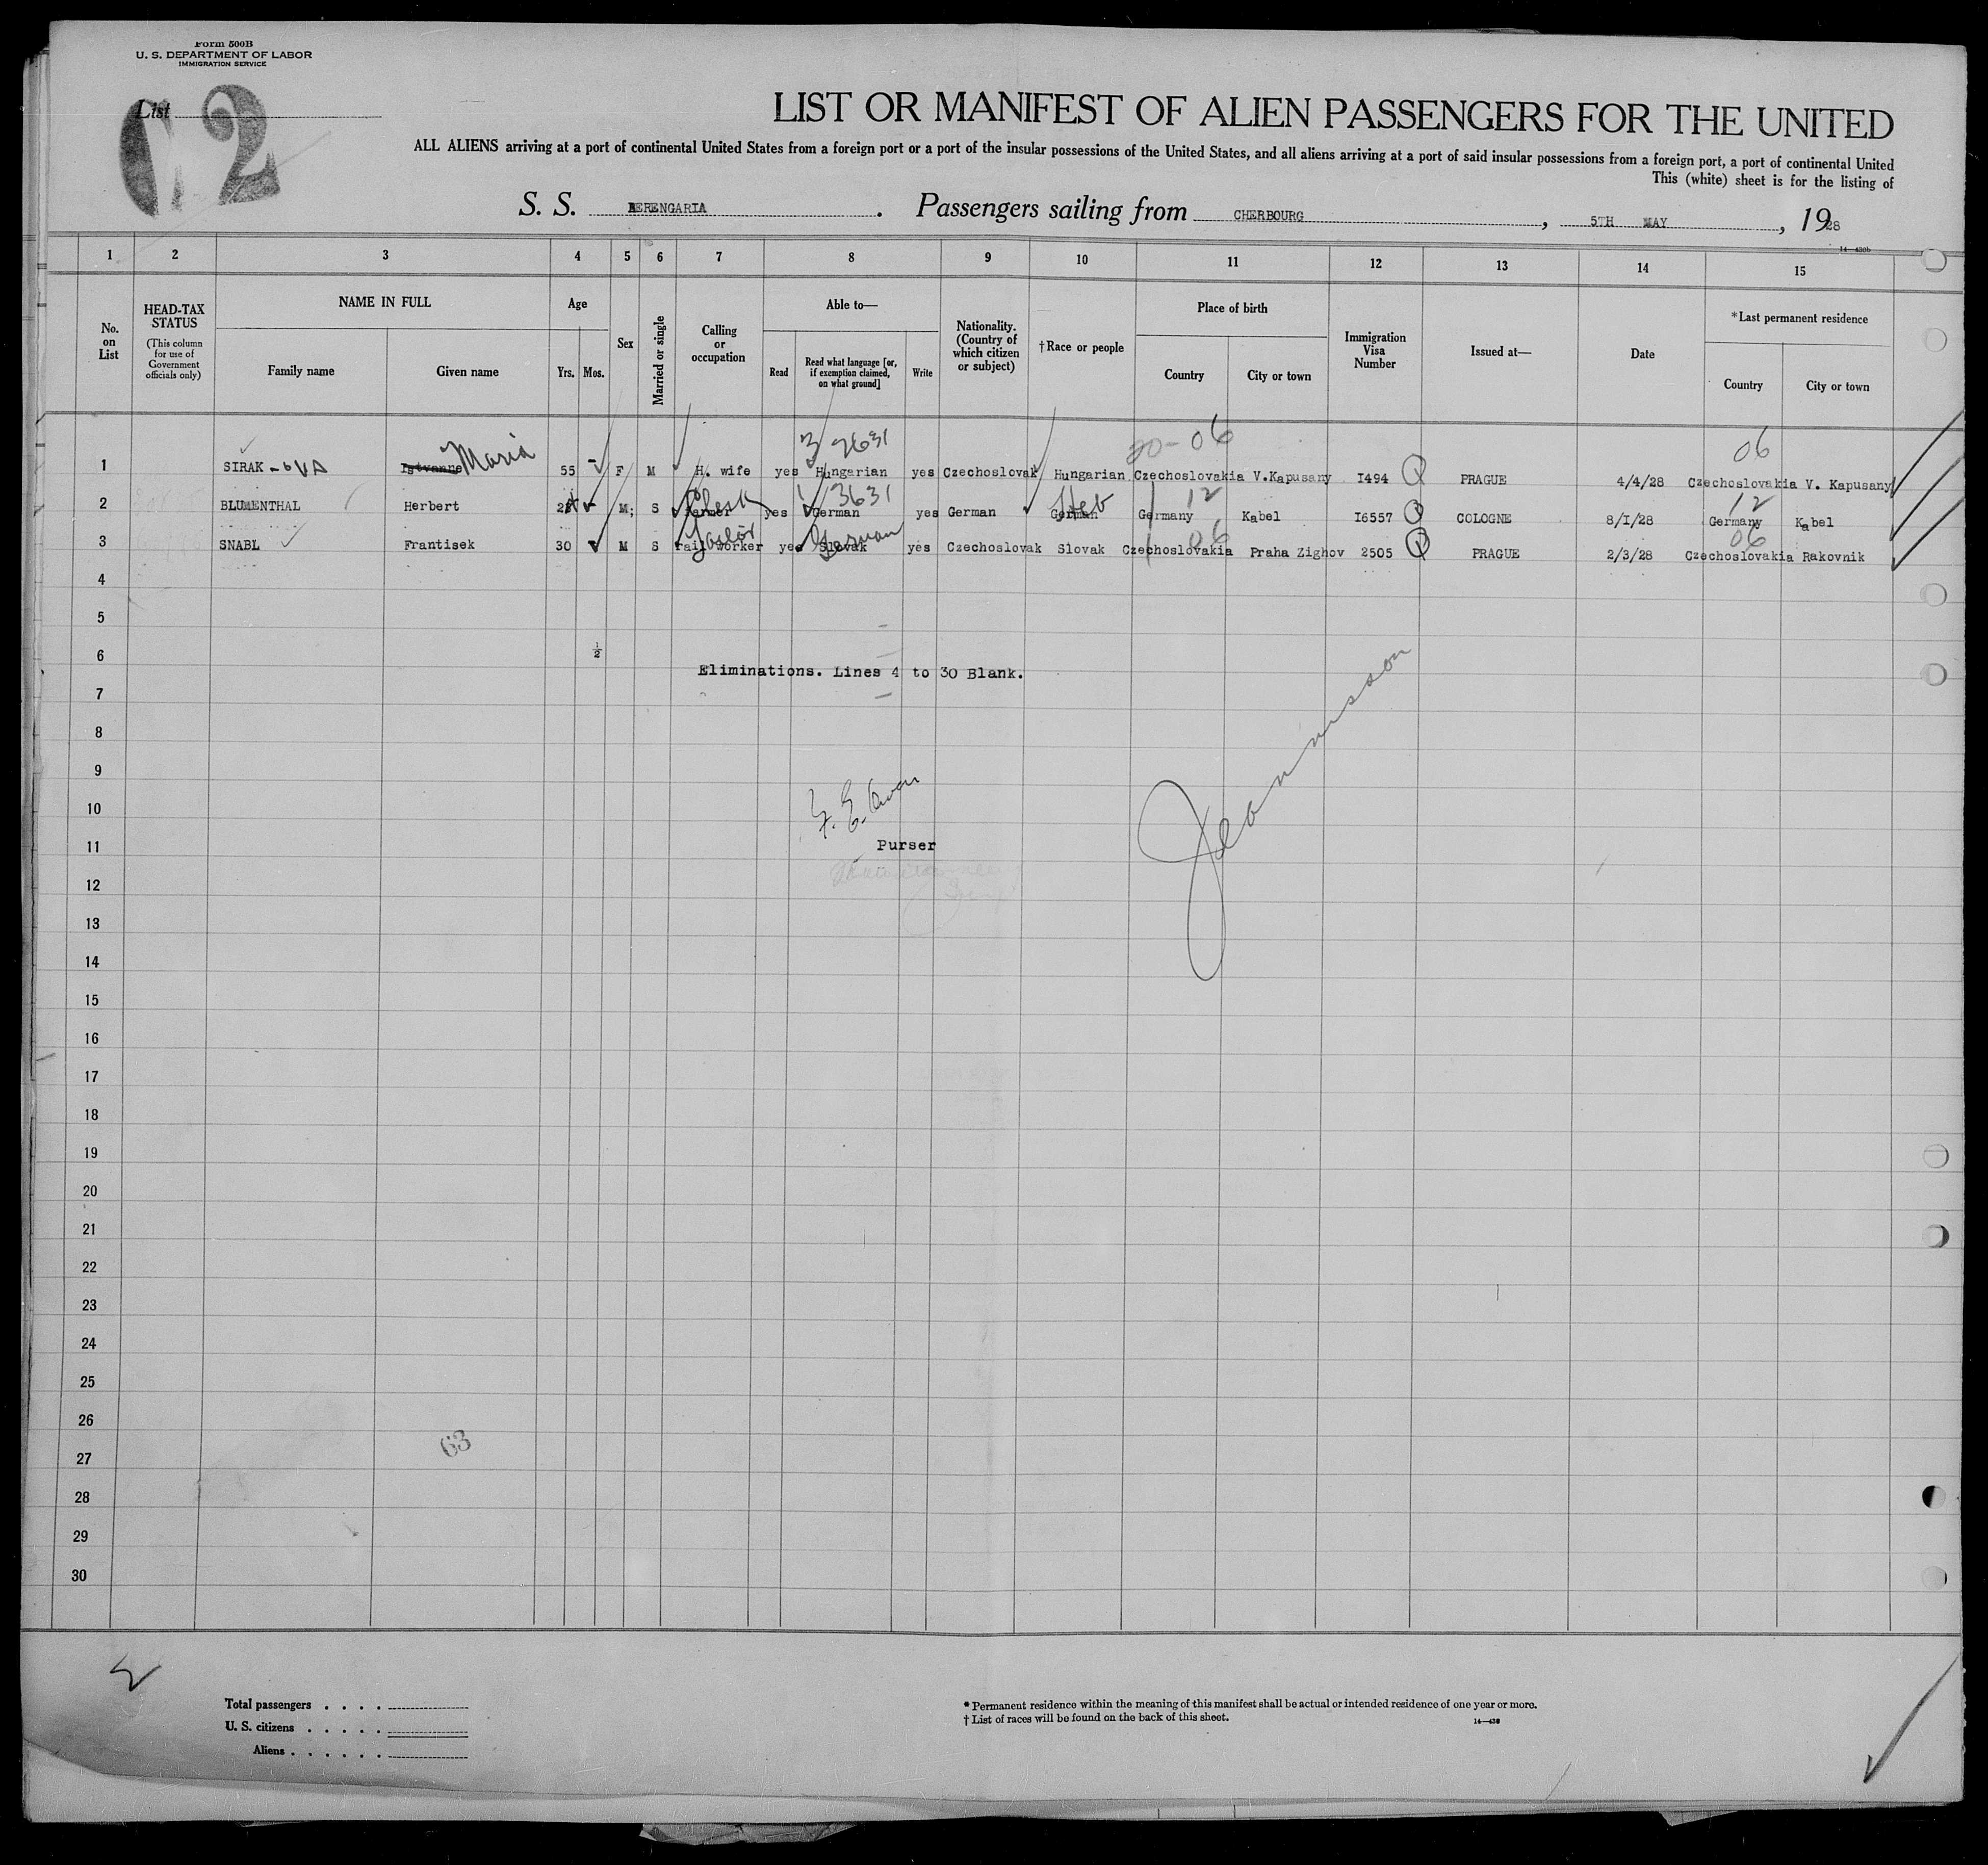 Form 500B
U. S. DEPARTMENT OF LABOR
IMMIGRATION SERVICE
List
2
LIST OR MANIFEST OF ALIEN PASSENGERS FOR THE UNITED
ALL ALIENS arriving at a port of continental United States from a foreign port or a port of the insular possessions of the United States, and all aliens arriving at a port of said insular possessions from a foreign port, a port of continental United
This (white) sheet is for the listing of
S. S. BERENGARIA. Passengers sailing from CHERBOURG, 5TH MAY, 1928
14—430b
1 2 3 4 5 6 7 8 9 10 11 12 13 14 15
No. on List
HEAD-TAX STATUS
(This column for use of Government officials only)
NAME IN FULL
Family name Given name
Age
Yrs. Mos.
Sex
Married or single
Calling or occupation
Able to—
Read
Read what language [or, if exemption claimed, on what ground]
Write
Nationality. (Country of which citizen or subject)
†Race or people
Place of birth
Country City or town
Immigration Visa Number
Issued at—
Date
*Last permanent residence
Country City or town
3 2631 20-06 06
1 SIRAK-OVA Istvanne Maria 55 - F M H. wife yes Hungarian yes Czechoslovak Hungarian Czechoslovakia V.Kapusany I494 PRAGUE 4/4/28 Czechoslovakia V. Kapusany
1 3631 12 12
2 BLUMENTHAL Herbert 28 M; S Clerk yes German yes German German Heb Germany Kabel I6557 COLOGNE 8/I/28 Germany Kabel
06 06
3 SNABL Frantisek 30 M S rail worker yes Slovak German yes Czechoslovak Slovak Czechoslovakia Praha Zighov 2505 PRAGUE 2/3/28 Czechoslovakia Rakovnik
4
5
6 ½
Eliminations. Lines 4 to 30 Blank.
7
8
9
10
11 Purser
12
13
14
15
16
17
18
19
20
21
22
23
24
25
26
63
27
28
29
30
Total passengers . . . .
U. S. citizens . . . . .
Aliens . . . . . .
* Permanent residence within the meaning of this manifest shall be actual or intended residence of one year or more.
† List of races will be found on the back of this sheet.
14—430